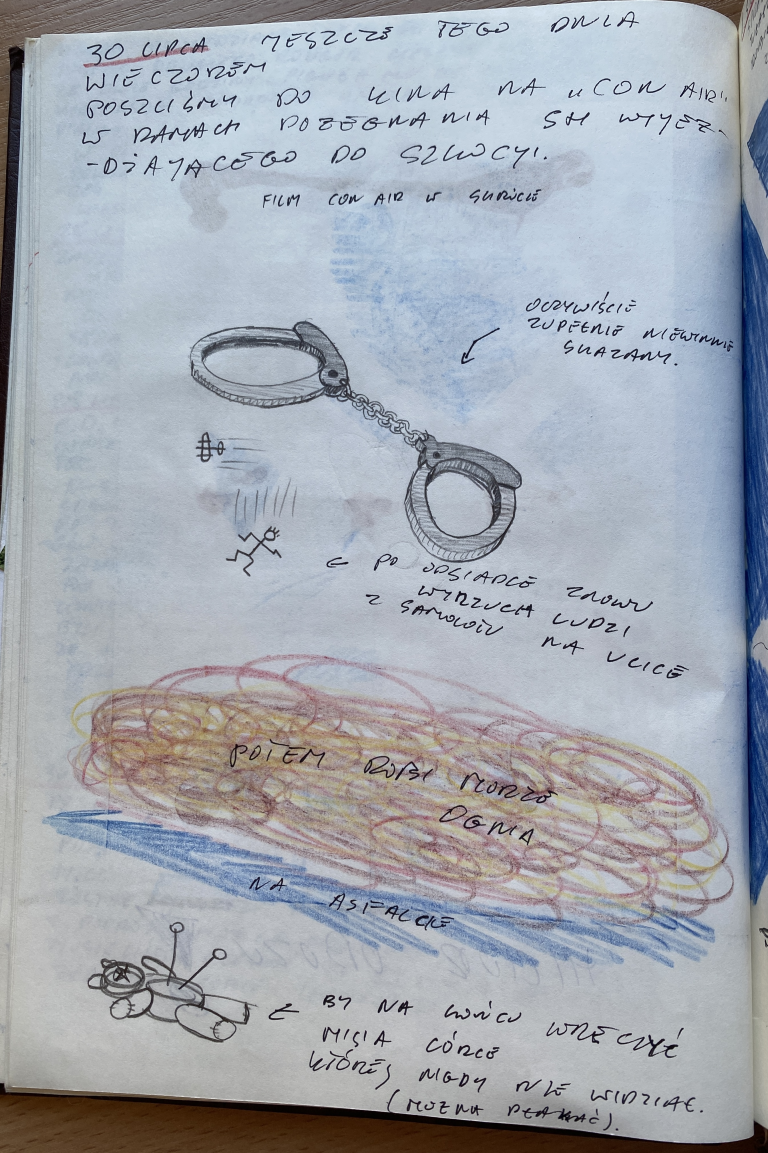 30 LIPCA JESZCZE TEGO DNIA
WIECZOREM
POSZLIŚMY DO KINA NA "CON AIR"
W RAMACH POŻEGNANIA SH WYJEŻ-
-DŻAJĄCEGO DO SZKOCJI.
FILM CON AIR W SKRÓCIE
OCZYWIŚCIE
ZUPEŁNIE NIEWINNIE
SKAZANY.
PO ODSIADCE ZNOWU
WYRZUCA LUDZI
Z SAMOLOTU NA ULICE
POTEM ROBI MORZE
OGNIA
NA ASFALCIE
BY NA KOŃCU WRĘCZYĆ
MISIA CÓRCE
KTÓREJ NIGDY NIE WIDZIAŁ.
(MOŻNA PŁAKAĆ).